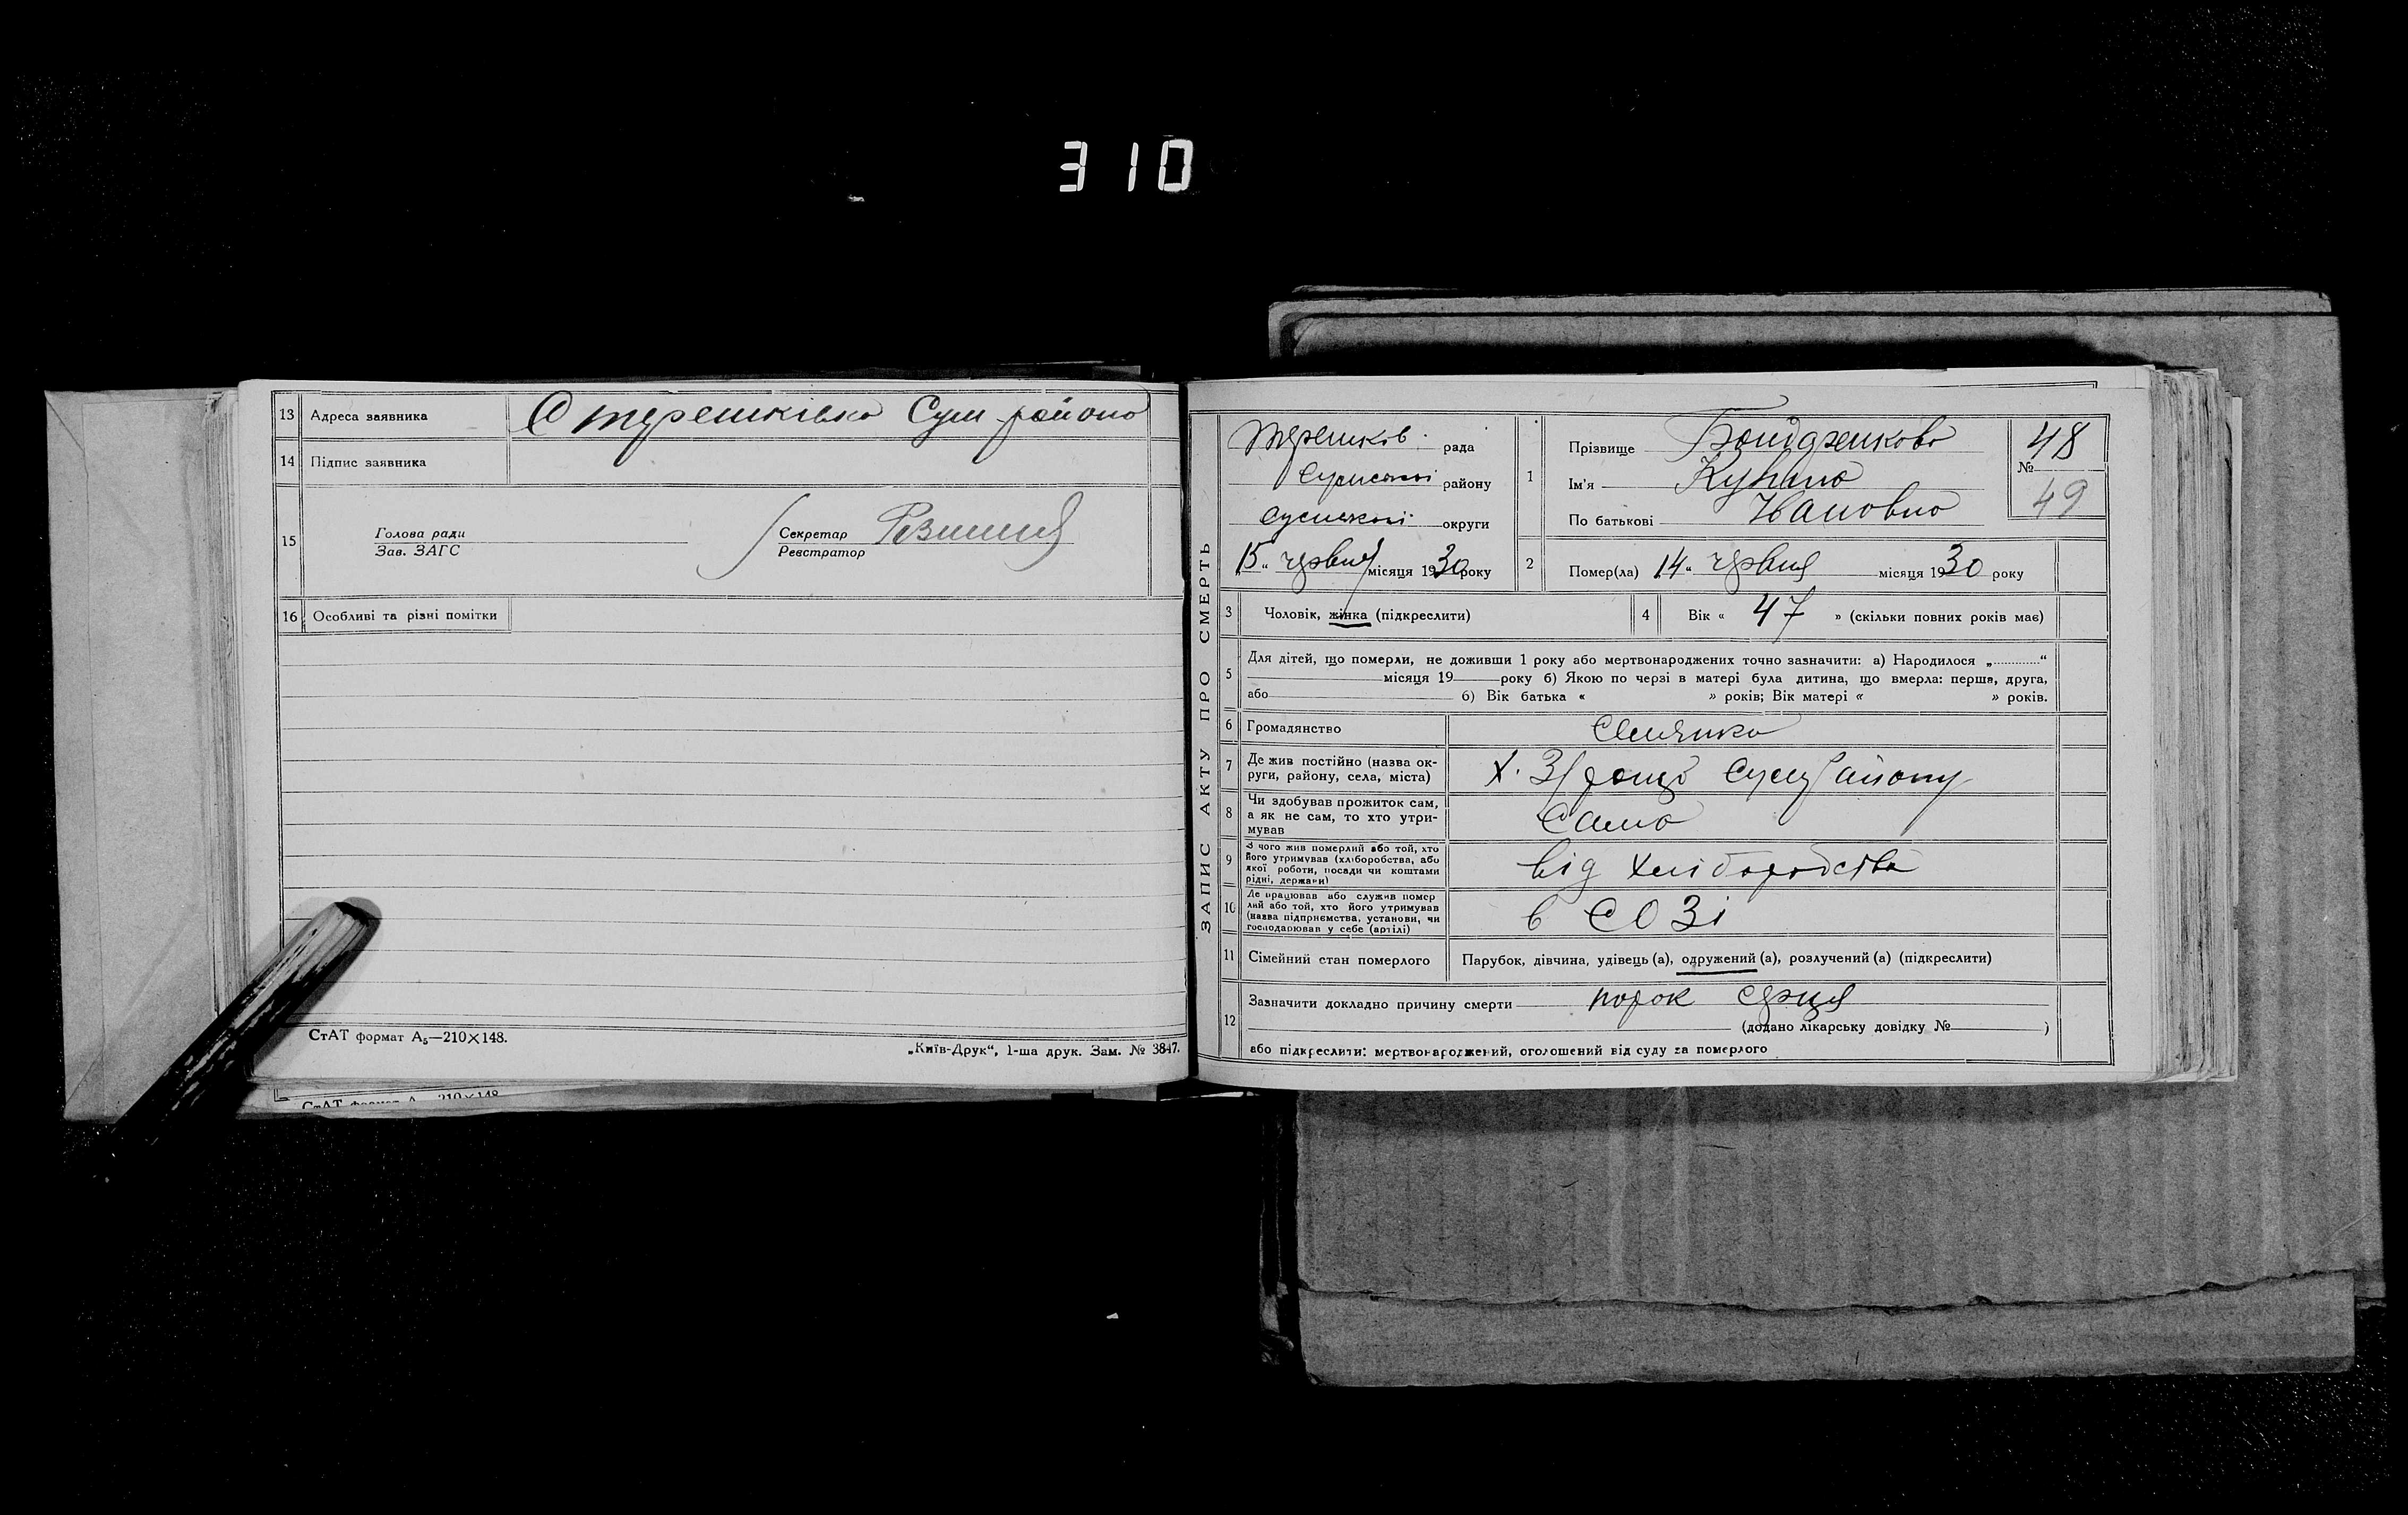 310
13 Адреса заявника С терешківка Сум району
14 Підпис заявника
15 Голова ради
Зав. ЗАГС
Секретар
Реєстратор
16 Особливі та різні помітки
СтАТ формат А₅—210×148.
„Київ-Друк“, 1-ша друк. Зам. № 3847.
ЗАПИС АКТУ ПРО СМЕРТЬ
Терешків. рада
Сумської району
Сумської округи
„15“ червня місяця 1930 року
1 Прізвище
Ім'я
По батькові Івановна
48
№
49
2 Помер(ла) 14“ червня місяця 1930 року
3 Чоловік, жінка (підкреслити)
4 Вік « 47 » (скільки повних років має)
5 Для дітей, що померли, не доживши 1 року або мертвонароджених точно зазначити: а) Народилося „............“
місяця 19 року б) Якою по черзі в матері була дитина, що вмерла: перша, друга,
або б) Вік батька « » років; Вік матері « » років.
6 Громадянство Селянка
7 Де жив постійно (назва ок-
руги, району, села, міста) Х. Сум Району
8 Чи здобував прожиток сам,
а як не сам, то хто утри-
мував Сама
9 З чого жив померлий або той, хто
його утримував (хліборобства, або
якої роботи, посади чи коштами
рідні, держави) від хліборобства
10 Де працював або служив помер
лий або той, хто його утримував
(назва підприємства, установи, чи
господарював у себе (артілі) в СОЗі
11 Сімейний стан померлого Парубок, дівчина, удівець (а), одружений (а), розлучений (а) (підкреслити)
12 Зазначити докладно причину смерти порок серця
(додано лікарську довідку № )
або підкреслити: мертвонароджений, оголошений від суду за померлого
СтАТ формат А 210×148